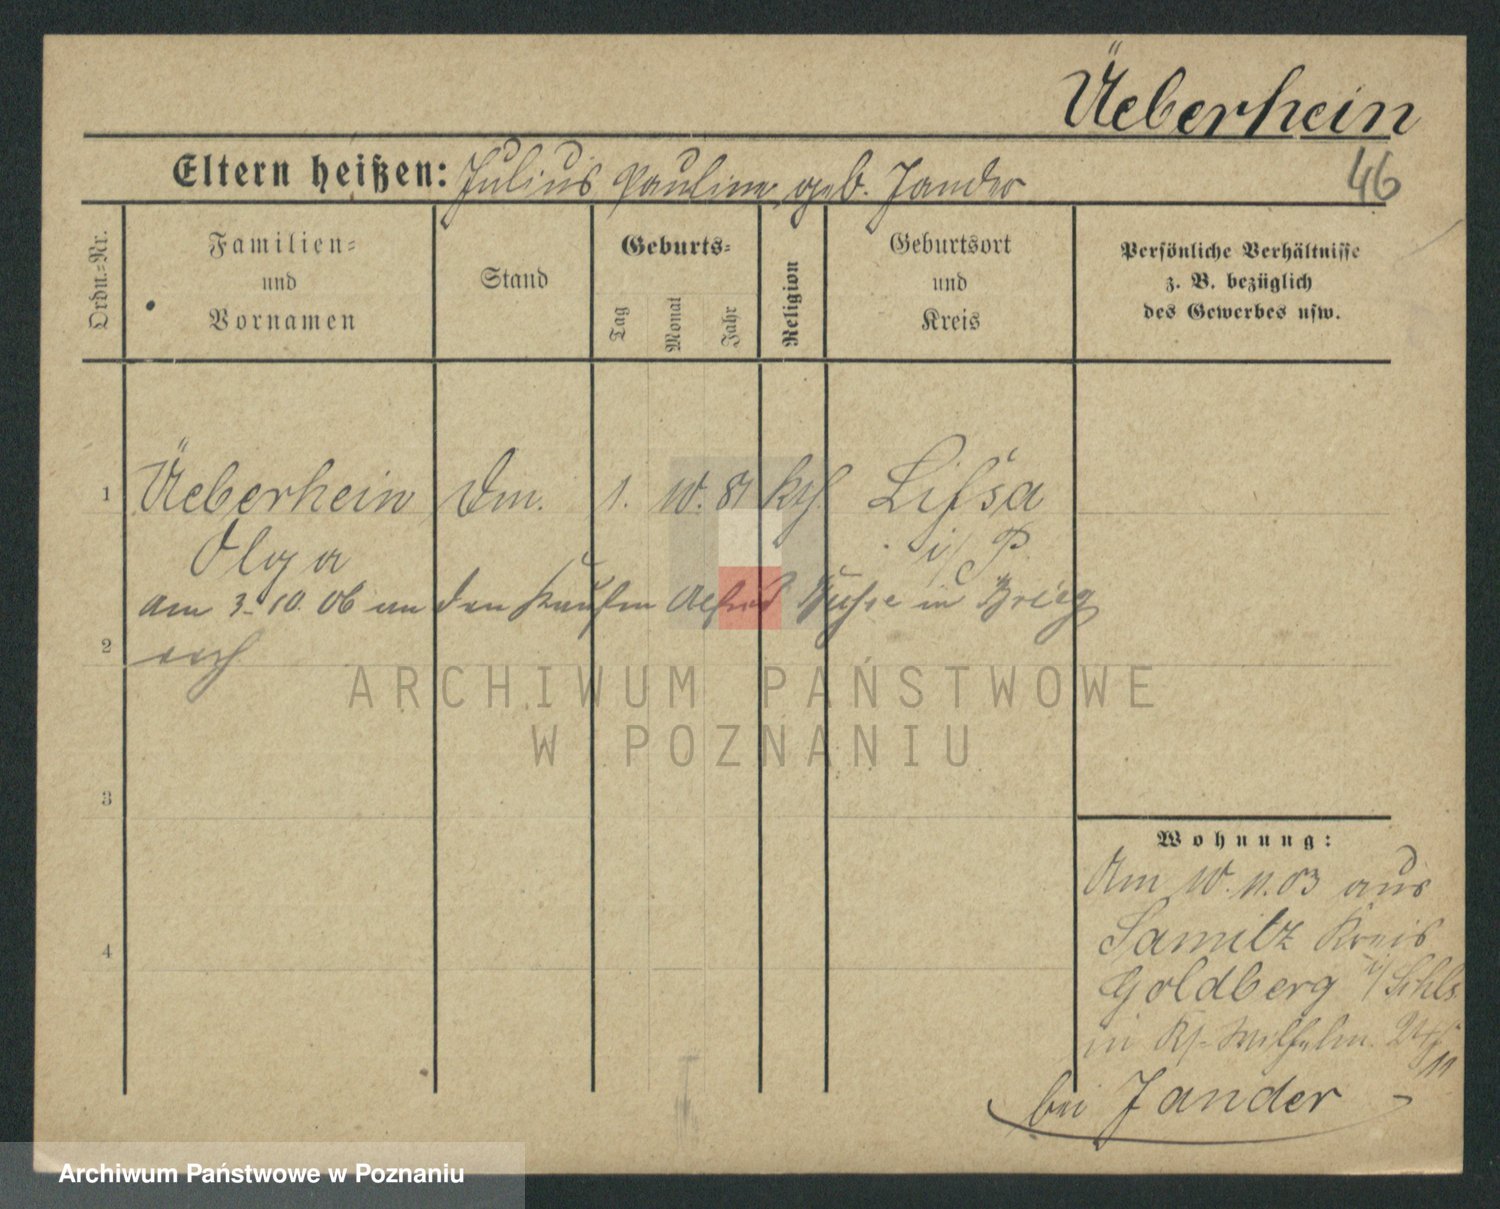 Üeberhein
46
Eltern heißen: Julius Pauline, geb. Jander
Ordn.=Nr.
Familien=
und
Vornamen
Stand
Geburts=
Tag
Monat
Jahr
Religion
Geburtsort
und
Kreis
Persönliche Verhältnisse
z. B. bezüglich
des Gewerbes usw.
1 Üeberhein 1. 10. 81 kth. Lissa
Olga i/P.
am 3. 10. 06 an den Kaufm Alfred in Brieg
2 verh
3
4
Wohnung:
Am 10. 11. 03 aus
Samitz Kreis
Goldberg i/Schls.
in
bei Jander
ARCHIWUM PAŃSTWOWE
W POZNANIU
Archiwum Państwowe w Poznaniu